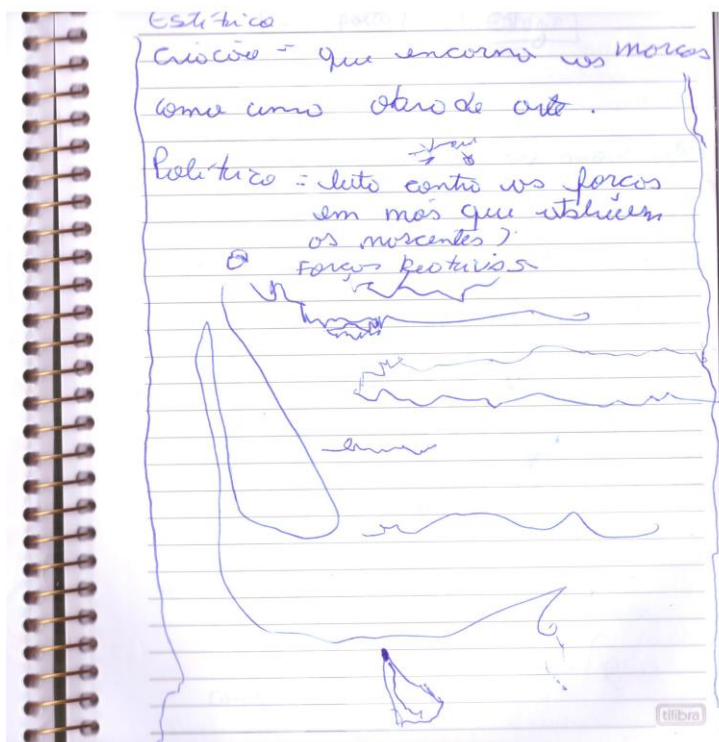 Estético
Criação = que encarna as marcas
como uma obra de arte.
Político = luta contra as forças
em mos que obstruem
os nascentes)
Forças Reativas
tilibra